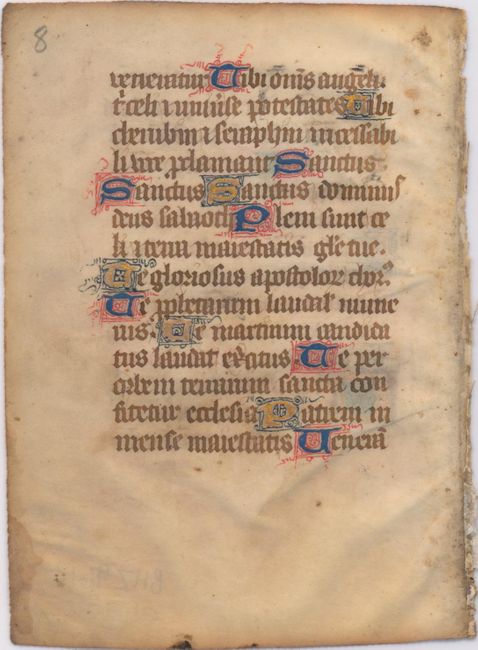 8
veneratur Tibi om̄s angeli·
t̄ celi ⁊ uniu̇se potestates Tibi
cherubin ⁊ seraphin incessabi
li voce ꝓclamant Sanctus
Sanctus Sanctus dominus
deus sabaoth Pleni sunt ce
li ⁊ terra maiestatis gl̄e tue.
Te gloriosus apostoloꝝ choꝛ⁹
Te ꝓphetarum laudab̄ nume
rus· Te martirum candida
tus laudat ex̄citus· Te per
orbem terrarum sancta con
fitetur ecclesia Patrem in
mense maiestatis Venerā